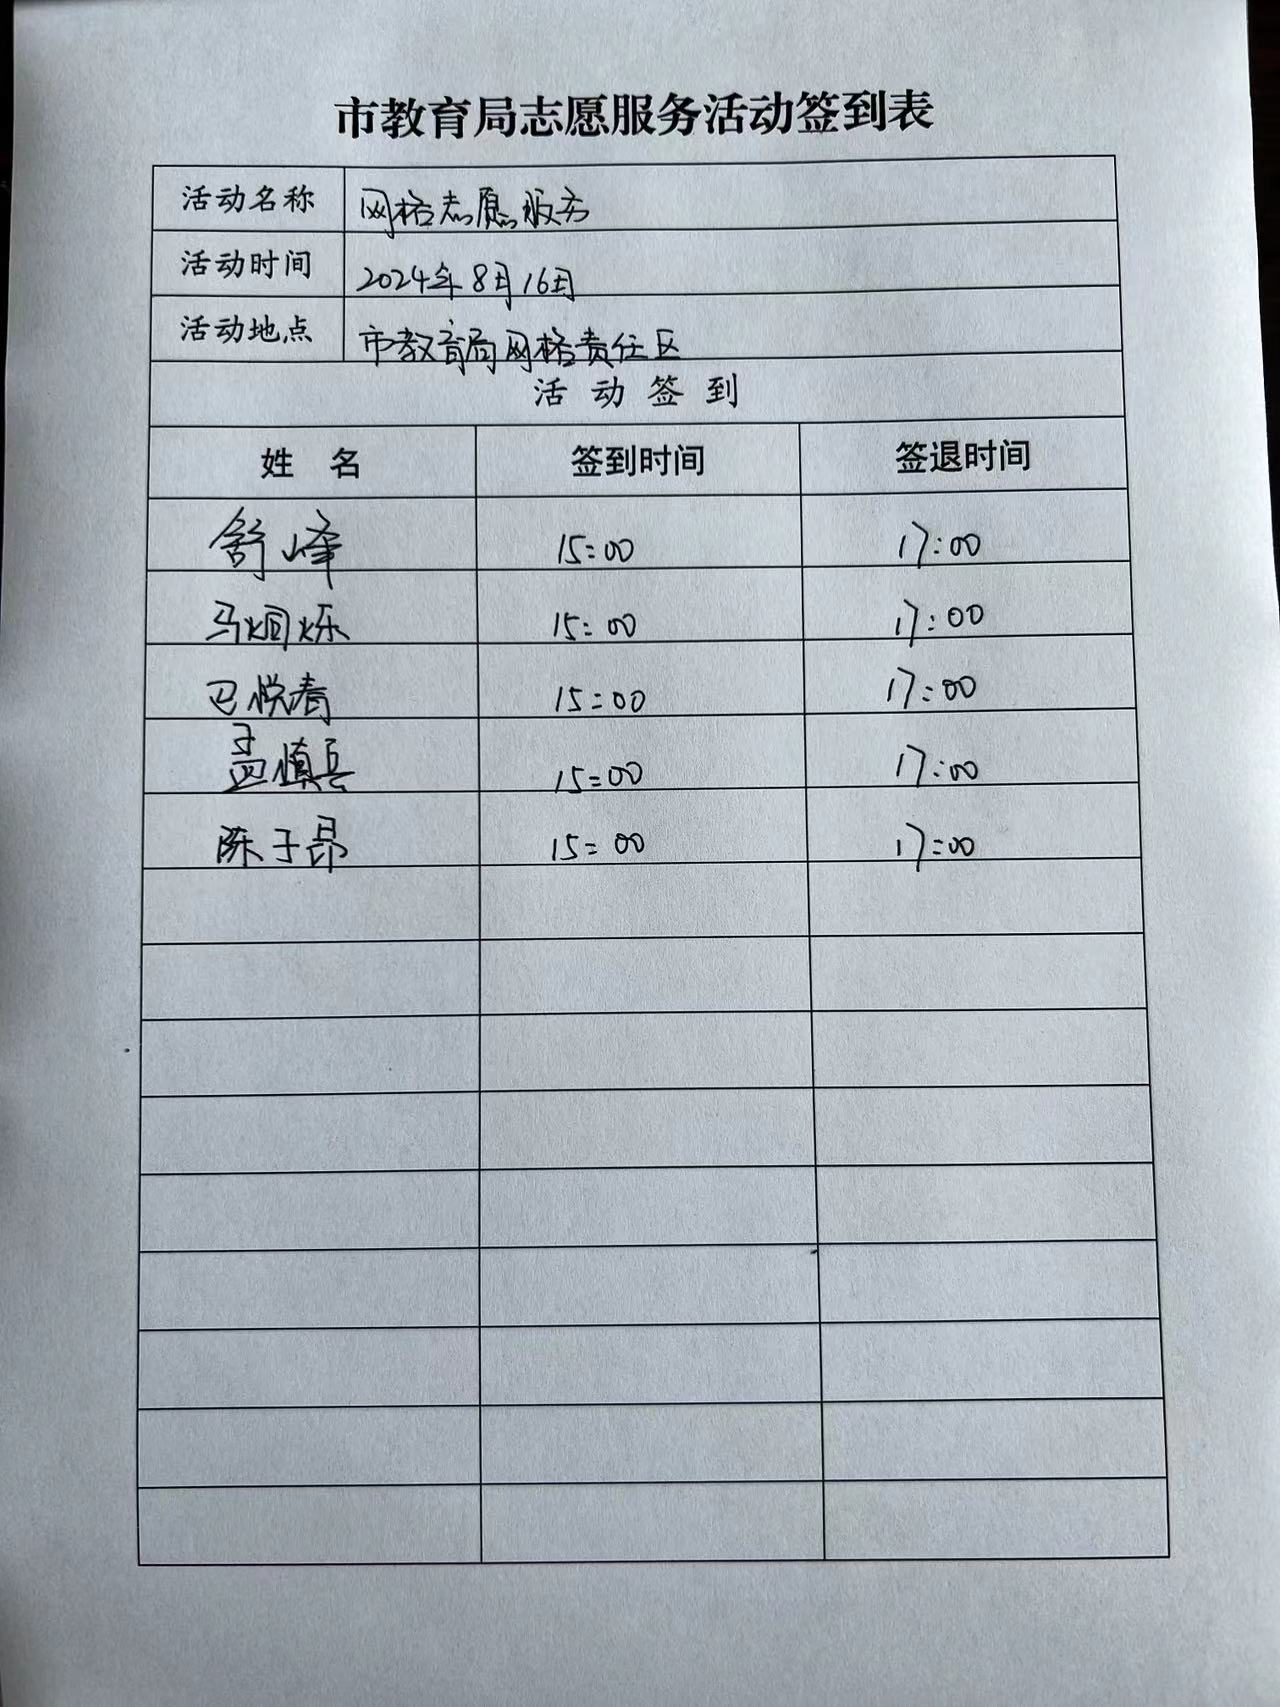 市教育局志愿服务活动签到表
活动名称 网格志愿服务
活动时间 2024年8月16日
活动地点 市教育局网格责任区
活动签到
姓名 签到时间 签退时间
舒峰 15:00 17:00
马炯烁 15:00 17:00
卫悦春 15:00 17:00
孟慎兵 15:00 17:00
陈于昂 15:00 17:00